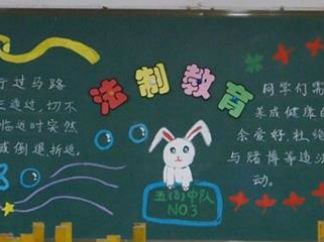 法制教育
过马路
过,切不
临近时突然
或倒退折返。
同学们需
养成健康的
余爱好,杜绝
与赌博等违法
动。
中队
NO3